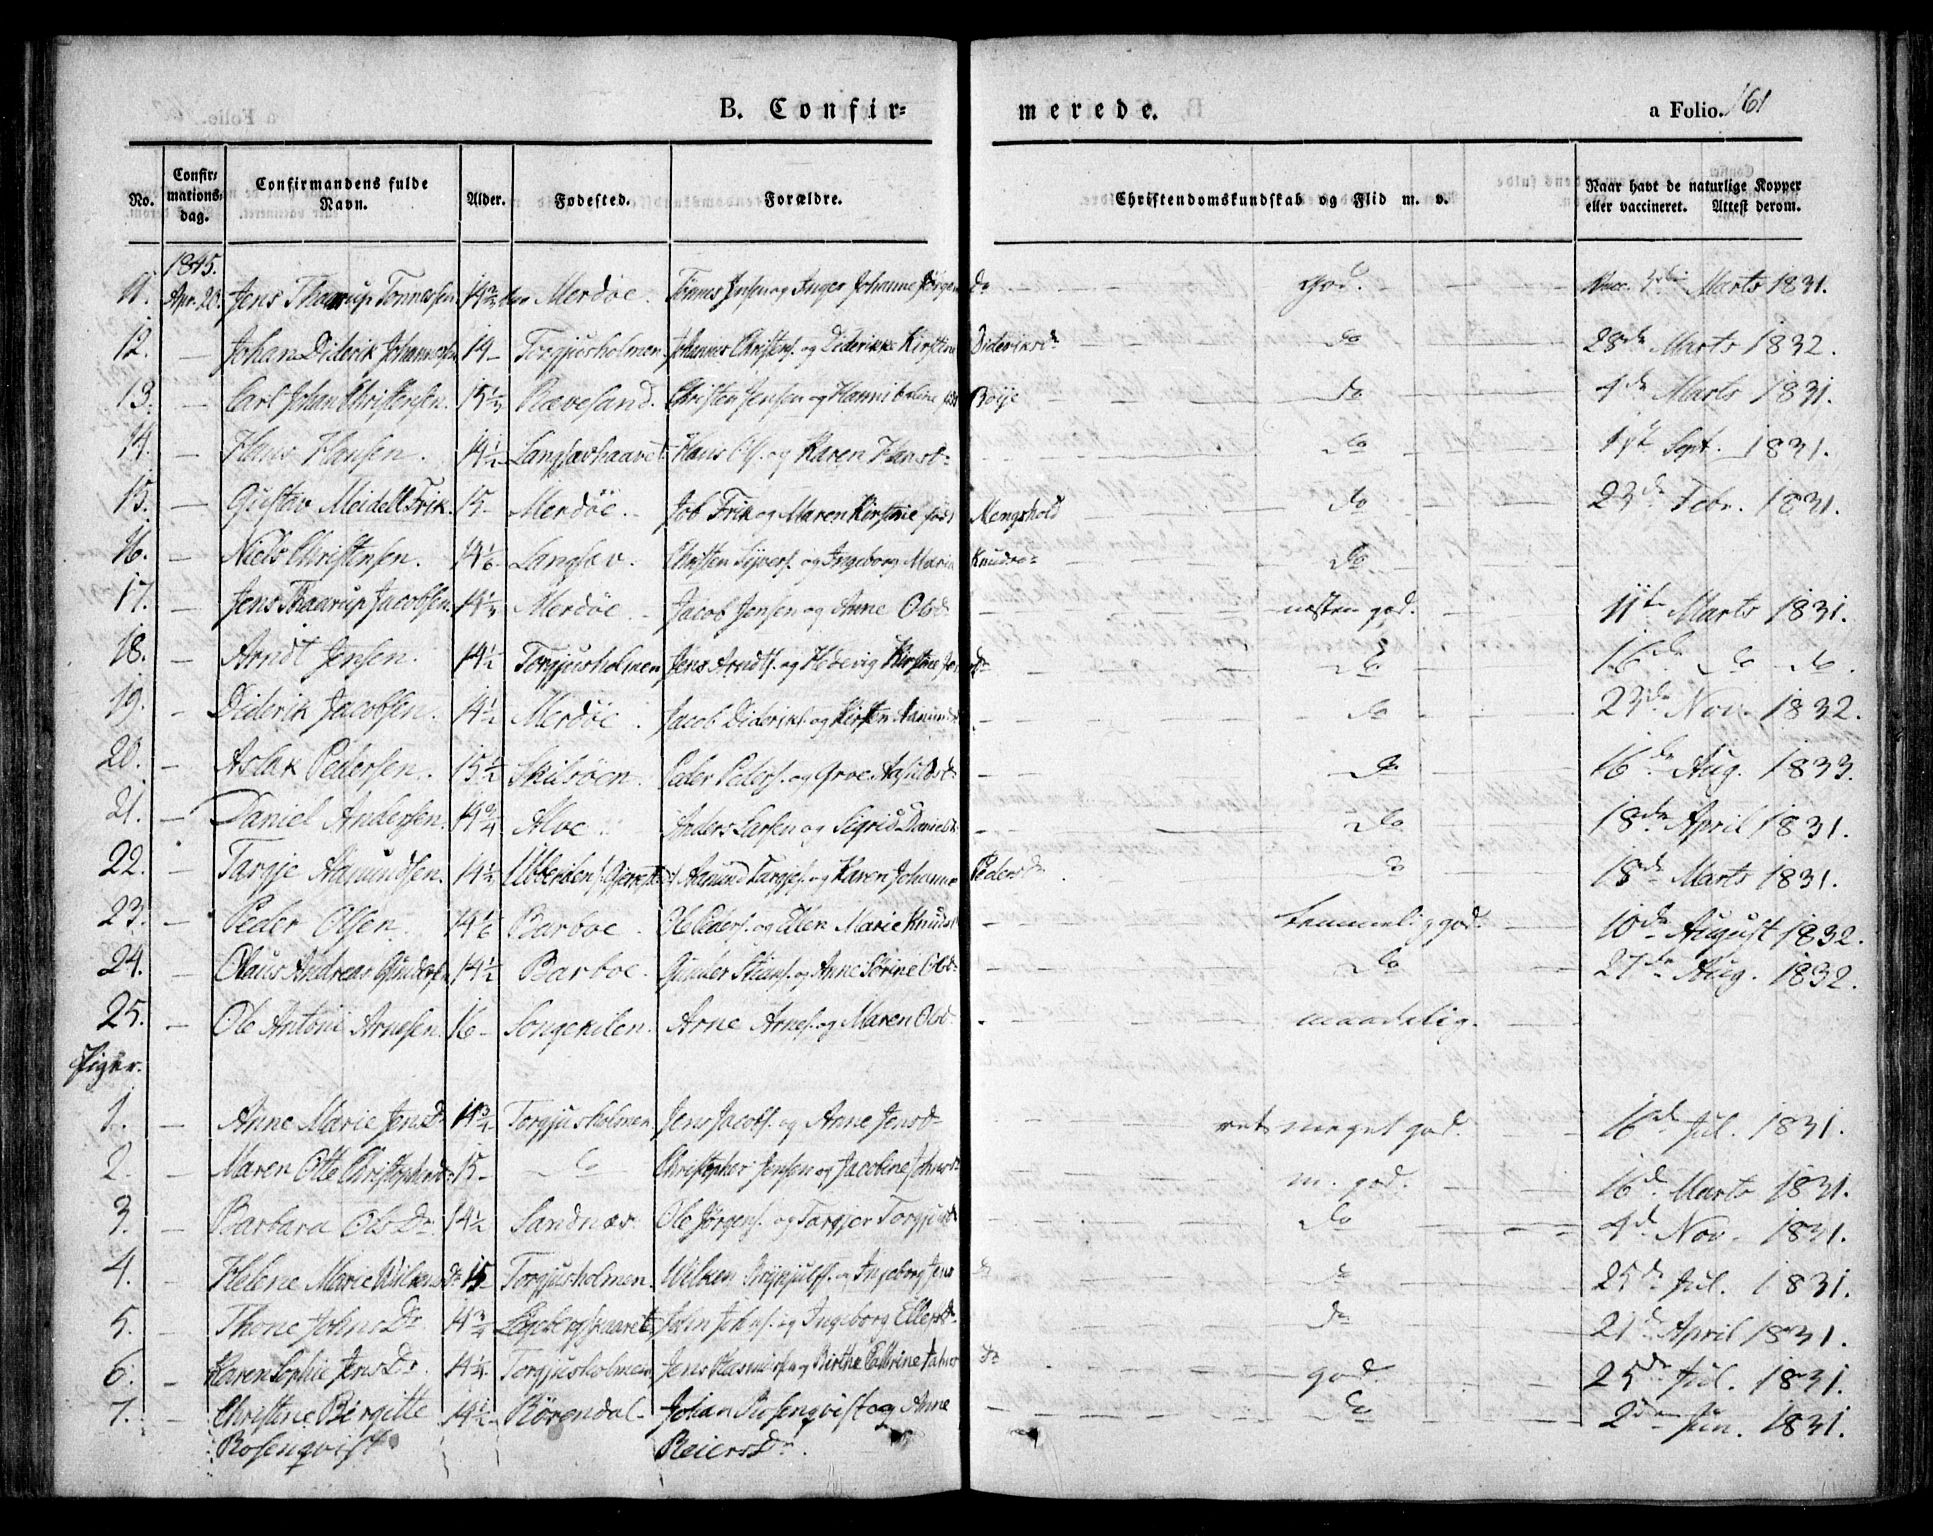 B. Confir=
merede.
a Folio. 161
No. Confir=mations=dag. Confirmandens fulde Navn. Alder. Fødested. Forældre. Christendomskundskab og Flid m. v. Naar havt de naturlige Kopper eller vaccineret. Attest derom.
1845.
11. Apr. 20. Jens Thaarup Tønnessen Merdøe. Tønnes Jensen og Inger Johanne Jørgens D. god. Marts 1831.
12. — Johan Diderik Johannessen 14 — Torgjusholmen Johannes Christens. og Diderikke Kirstine Dideriksd. — do 28de Marts 1832.
13. — Carl Johan Christensen. 15 1/2 Rævesand. Christen Jensen og Hannibaline født Bøije — do 4de Marts 1831.
14. — Hans Hansen. 14 1/2 Langsævhaavet Hans Ols. og Karen Hansd. — do Sept. 1831.
15. — Gustav Meidell Friis. 15 — Merdøe. Job Friis og Maren Kirstine født Mengshold — do 23de Febr. 1831.
16. — Niels Christensen. 14 1/6 Langsæv. Christen Sijvers. og Ingeborg Maria Knudsd. — do
17. — Jens Thaarup Jacobsen. 14 1/2 Merdøe — Jacob Jensen og Anne Olsd. — næsten god. 11te Marts 1831.
18. — Arndt Jensen. 14 1/2 Torgjusholmen Jens Arndts. og Hedevig Kirstine D. — do 16de do do.
19. — Diderik Jacobsen. 14 1/2 Merdøe. Jacob Dideriks. og Kirsten Aanunds — do 23de Nov. 1832.
20. — Aslak Pedersen. 15 1/2 Skilsøen. Peder Peders. og Groe Aslaksd. — do 16de Aug. 1833.
21. — Daniel Andersen. 14 3/4 Alve Anders Larsen og Sigrid Danielsd. — do 18de April 1831.
22. — Targje Aanundsen. 14 1/2 Ubberøen Aanund Targjes. og Karen Johanne Pedersd. — do 18de Marts 1831.
23. — Peder Olsen. 14 1/6 Barboe. Ole Peders. og Elen Marie Knudsd. — temmelig god. — 10de August 1832.
24. — Olaus Andreas Gunders. 14 1/2 Barboe. Gunder Steens. og Anne Sørine Olsd. — do 27de Aug. 1832.
25. — Ole Antoni Arnesen. 16 — Songekilen. Arne Arnes. og Maren Olsd. — maadelig.
Piger.
1. — Anne Marie Jensd. 14 3/4 Torgjusholmen Jens Jacobs. og Anne Jensd. — ret meget god. — 16de Jul. 1831.
2. — Maren Otte Christophersd. 15 — do — Christopher Jensen og Jacobine Johnsd. — m. god. — 16de Marts 1831.
3. — Barbara Olsd. 14 1/2 Sandnæs. Ole Jørgens. og Targjer Torgjusd. — do 4de Nov. 1831.
4. — Helene Marie Wilkensd. 15 Torgjusholmen. Wilken og Ingeborg Jens D. do 25de Jul. 1831.
5. — Thone Johnsd. 14 3/4 John Johns. og Ingeborg Ellefsd. do 21de April 1831.
6. — Karen Sophie Jensd. 14 1/4 Torgjusholmen Jens Rasmussen og Birthe Cathrine D. — god. — 25de Jul. 1831.
7. — Christine Birgitte 14 1/2 Rørendal — Johan Rosenqvist og Anne — do 2den Jun. 1831.
Rosenqvist Reiersd.